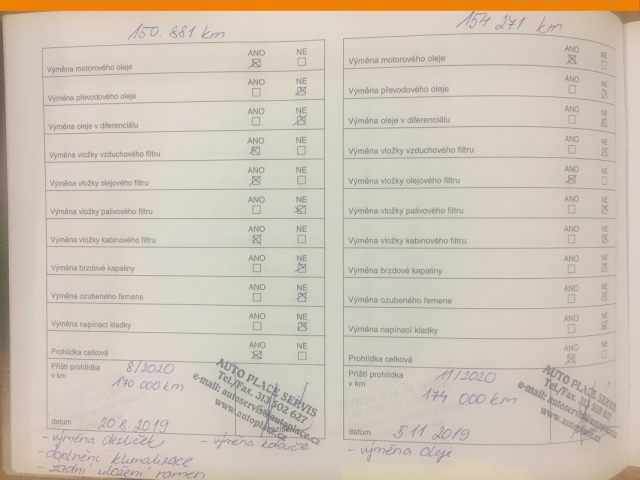 150.881 km
ANO NE
Výměna motorového oleje
ANO NE
Výměna převodového oleje
ANO NE
Výměna oleje v diferenciálu
ANO NE
Výměna vložky vzduchového filtru
ANO NE
Výměna vložky olejového filtru
ANO NE
Výměna vložky palivového filtru
ANO NE
Výměna vložky kabinového filtru
ANO NE
Výměna brzdové kapaliny
ANO NE
Výměna ozubeného řemene
ANO NE
Výměna napínací kladky
ANO NE
Prohlídka celková
Příští prohlídka 8/2020
v km 170.000 km
AUTO PLACE SERVIS
Tel./Fax. 313 502 627
e-mail: autoservis@autoplace.cz
www.autoplace.cz
datum 20.8.2019
- výměna destiček - výměna kotoučů
- doplnění klimatizace
- zadní uložení ramen
154.271 km
ANO NE
Výměna motorového oleje
ANO NE
Výměna převodového oleje
ANO NE
Výměna oleje v diferenciálu
ANO NE
Výměna vložky vzduchového filtru
ANO NE
Výměna vložky olejového filtru
ANO NE
Výměna vložky palivového filtru
ANO NE
Výměna vložky kabinového filtru
ANO NE
Výměna brzdové kapaliny
ANO NE
Výměna ozubeného řemene
ANO NE
Výměna napínací kladky
ANO NE
Prohlídka celková
Příští prohlídka 11/2020
v km 174 000 km
AUTO PLACE SERVIS
Tel./Fax. 313 502 627
e-mail: autoservis
www.autoplace.cz
datum 5.11.2019
- výměna oleje